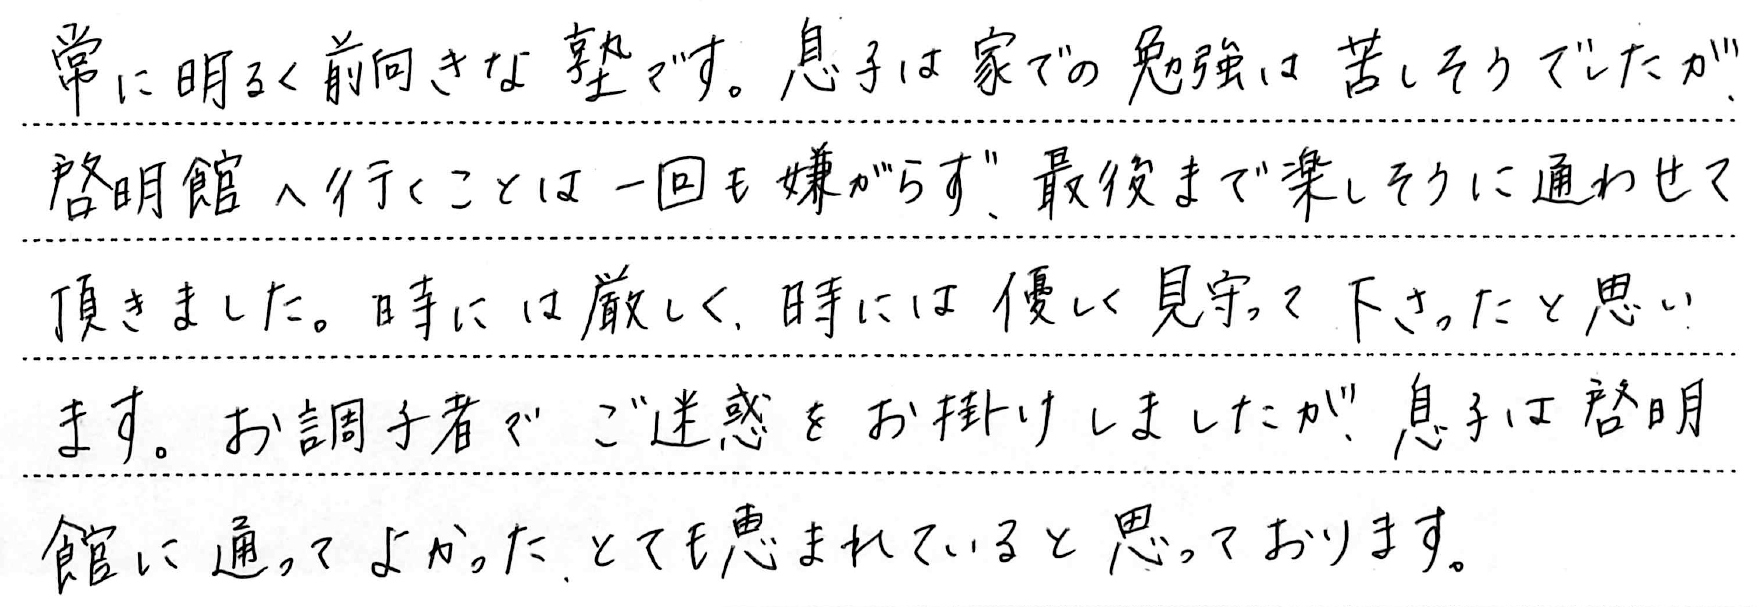 常に明るく前向きな塾です。息子は家での勉強は苦しそうでしたが、
啓明館へ行くことは一回も嫌がらず、最後まで楽しそうに通わせて
頂きました。時には厳しく、時には優しく見守って下さったと思い
ます。お調子者でご迷惑をお掛けしましたが、息子は啓明
館に通ってよかった、とても恵まれていると思っております。